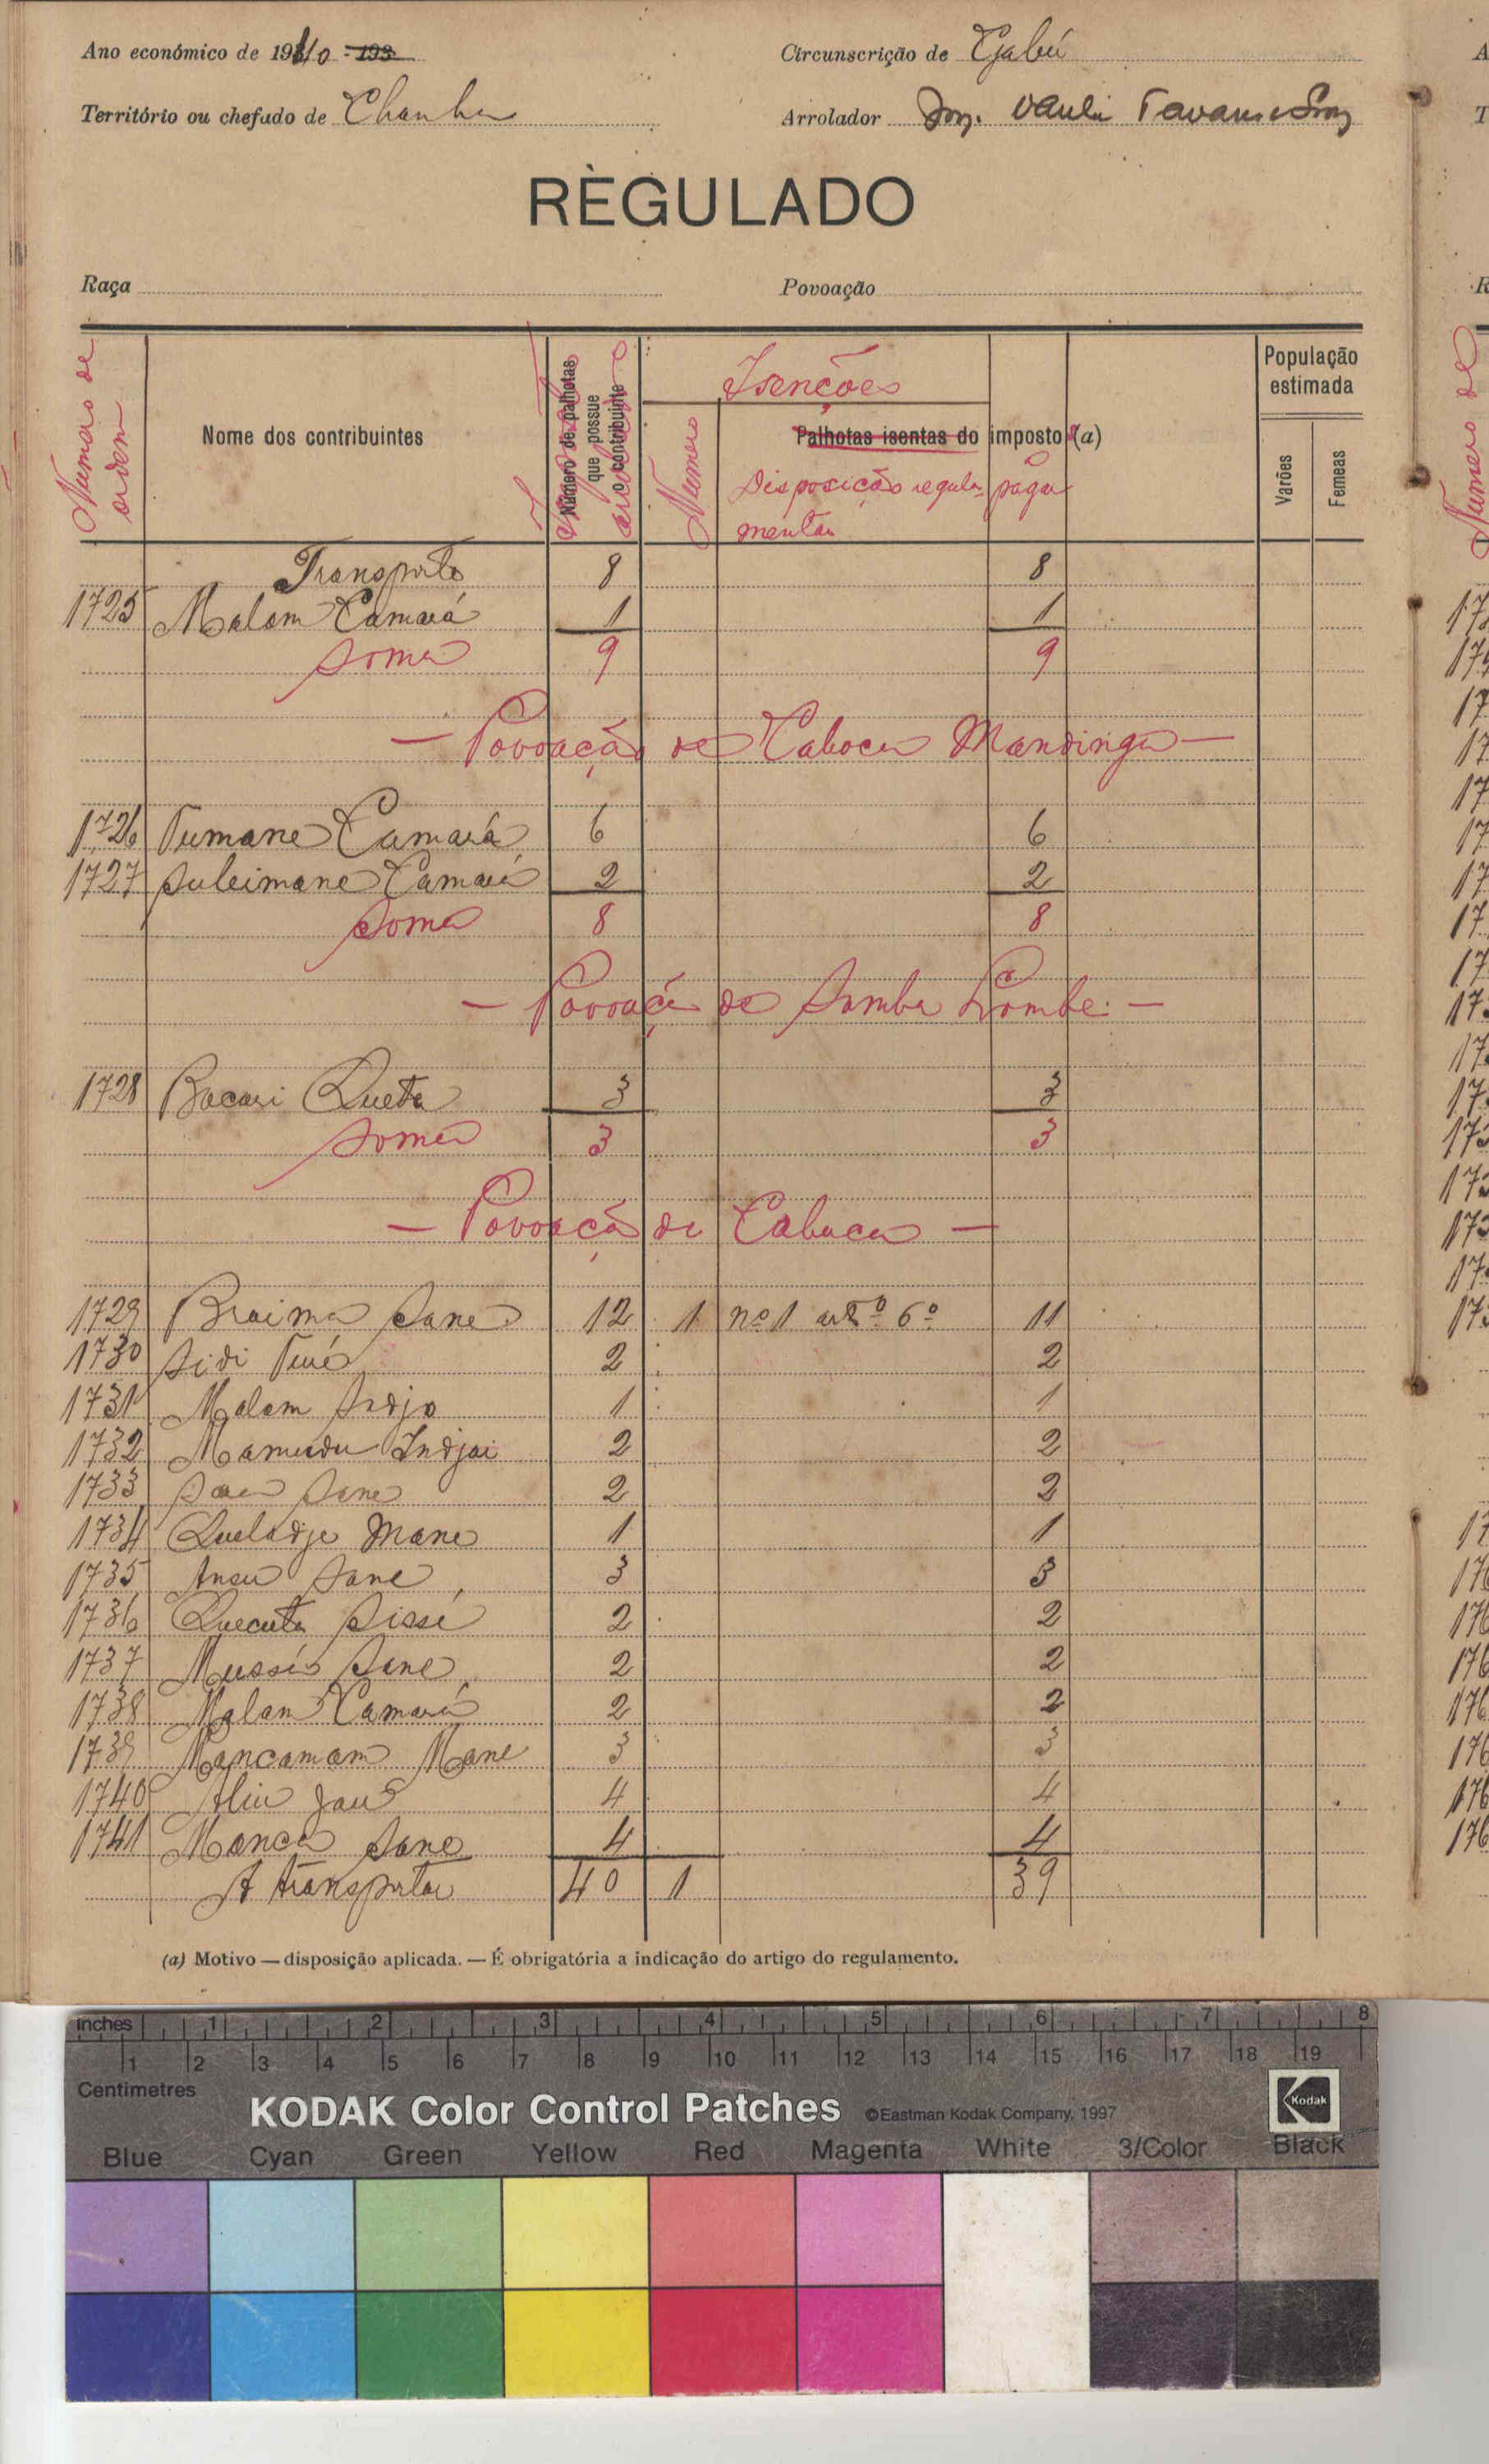 Ano económico de 1940 - 193
Circunscrição de Gabú
Território ou chefado de Chanha
Arrolador Tavares
RÈGULADO
Raça
Povoação
Numero de ordem
Nome dos contribuintes
Número de palhotas que possue o contribuinte
Isenções
Numero
Palhotas isentas do imposto (a)
Disposição regula- mentar
a pagar
População estimada
Varões
Femeas
Transporte 8 8
1725 Malam Camará 1 1
Soma 9 9
— Povoação de Caboca Mandinga —
1726 Tumane Camará 6 6
1727 Suleimane Camará 2 2
Soma 8 8
— Povoação de Samba —
1728 Bacari Queta 3 3
Soma 3 3
— Povoação de Cabuca —
1729 Braima Sane 12 1 nº 1 artº 6º 11
1730 Sidi Turé 2 2
1731 Malam 1 1
1732 Mamudu Indjai 2 2
1733 Sane 2 2
1734 Queladje Mane 1 1
1735 Ansu Sane 3 3
1736 Quecuta Sissé 2 2
1737 Mussá Sane 2 2
1738 Malam Camará 2 2
1739 Mancamam Mane 3 3
1740 Aliu Jau 4 4
1741 Manca Sane 4 4
A transportar 40 1 39
(a) Motivo — disposição aplicada. — É obrigatória a indicação do artigo do regulamento.
inches 1 2 3 4 5 6 7 8
1 2 3 4 5 6 7 8 9 10 11 12 13 14 15 16 17 18 19
Centimetres
KODAK Color Control Patches ©Eastman Kodak Company, 1997 Kodak
Blue Cyan Green Yellow Red Magenta White 3/Color Black